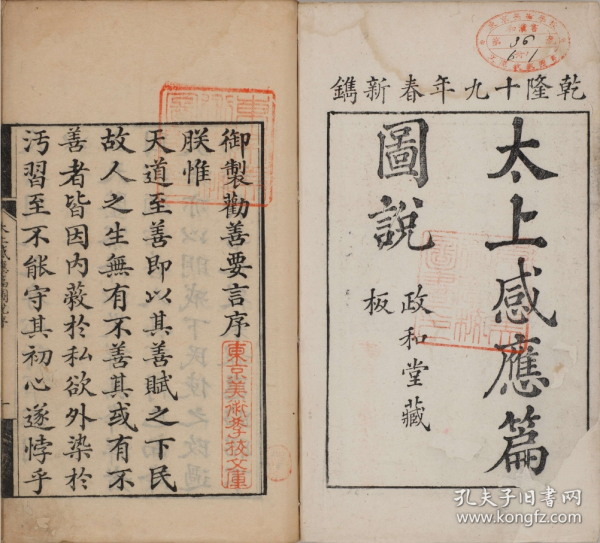 乾隆十九年春新鐫
太上感應篇
圖說
政和堂藏
板
御製勸善要言序
朕惟
天道至善即以其善賦之下民
故人之生無有不善其或有不
善者皆因内蔽於私欲外染於
汚習至不能守其初心遂悖乎
東京美術學校文庫
36
孔夫子旧书网
www.kongfz.com